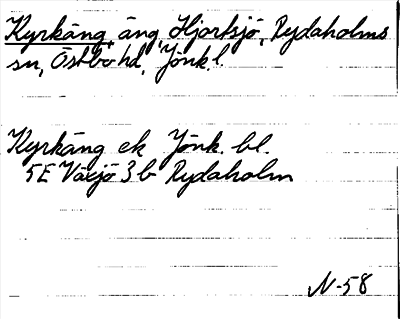 Kyrkäng, äng, Hjortsjö, Rydaholms
sn, Östbo hd, Jönk. l.
Kyrkäng ek Jönk. bl.
5E Växjö 3b Rydaholm
N-58